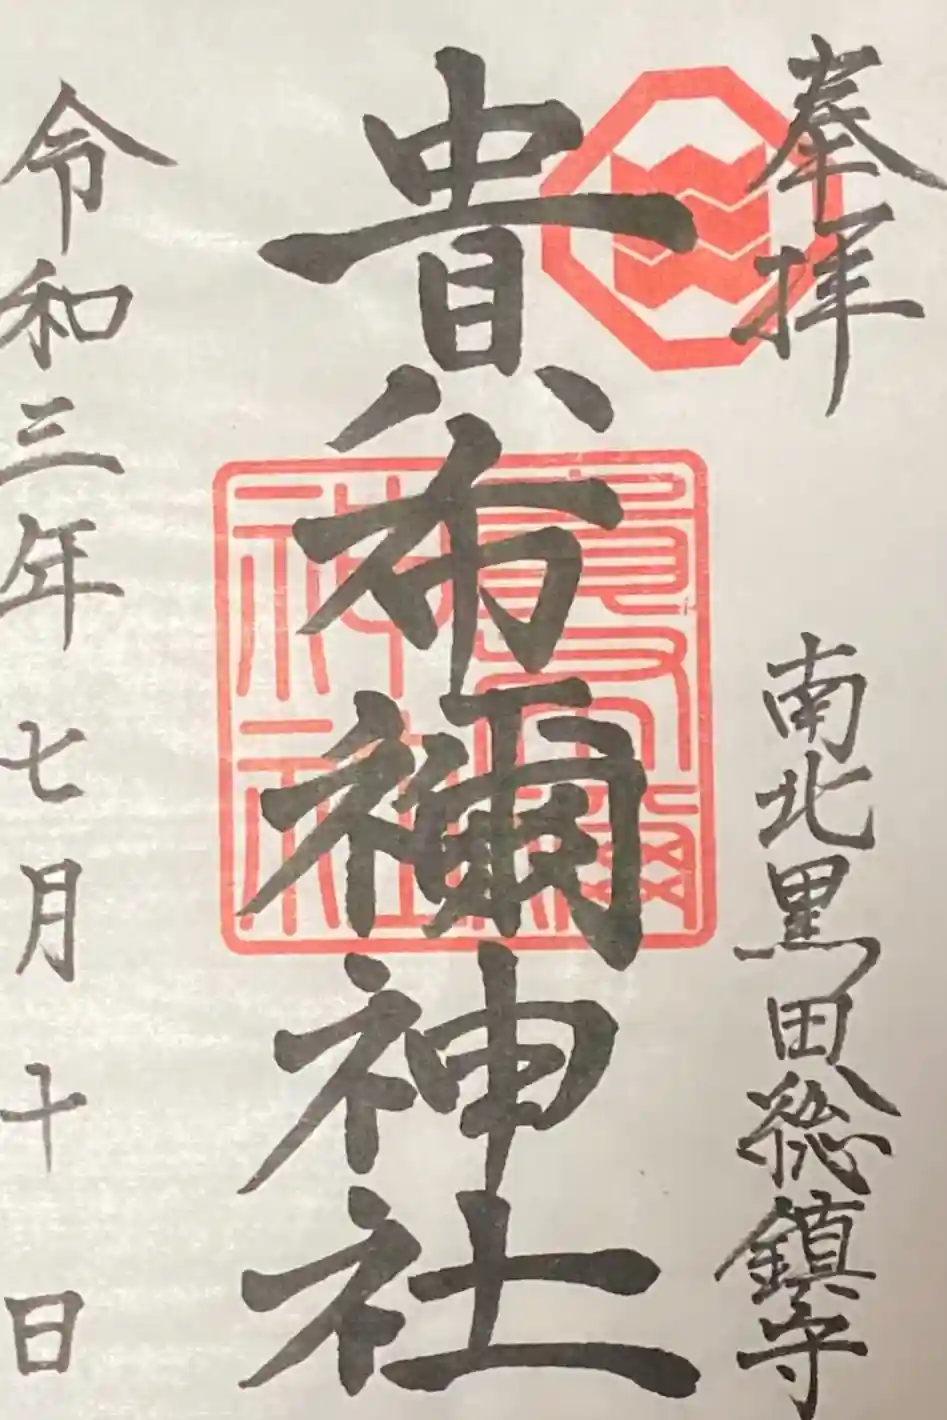 奉拝
南北黒田総鎮守
貴布禰神社
貴布禰
神社
令和三年七月十日